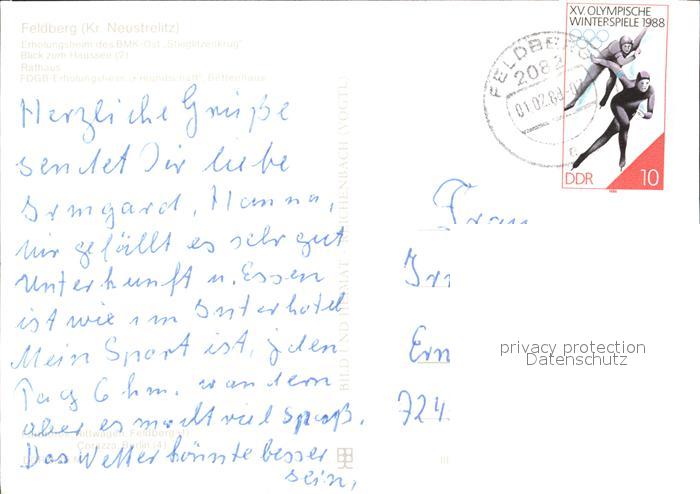 Feldberg (Kr. Neustrelitz)
Erholungsheim des BMK-Ost „Stieglitzenkrug"
Blick zum Haussee (2)
Rathaus
FDGB-Erholungsheim „Freundschaft", Bettenhaus
Herzliche Grüße
sendet Dir liebe
Irmgard, Hanna,
mir gefällt es sehr gut
Unterkunft u. Essen
ist wie im Interhotel
Mein Sport ist, jeden
Tag 6 km. wandern
aber es macht viel Spaß.
Das Wetter könnte besser
sein,
BILD UND HEIMAT REICHENBACH (VOGTL)
Mittwagen, Feldberg (1)
Corazza, Berlin (4)
FELDBERG
2082
01.02.89-0
XV. OLYMPISCHE
WINTERSPIELE 1988
DDR 10
Frau
Ir
Ern
724
privacy protection
Datenschutz